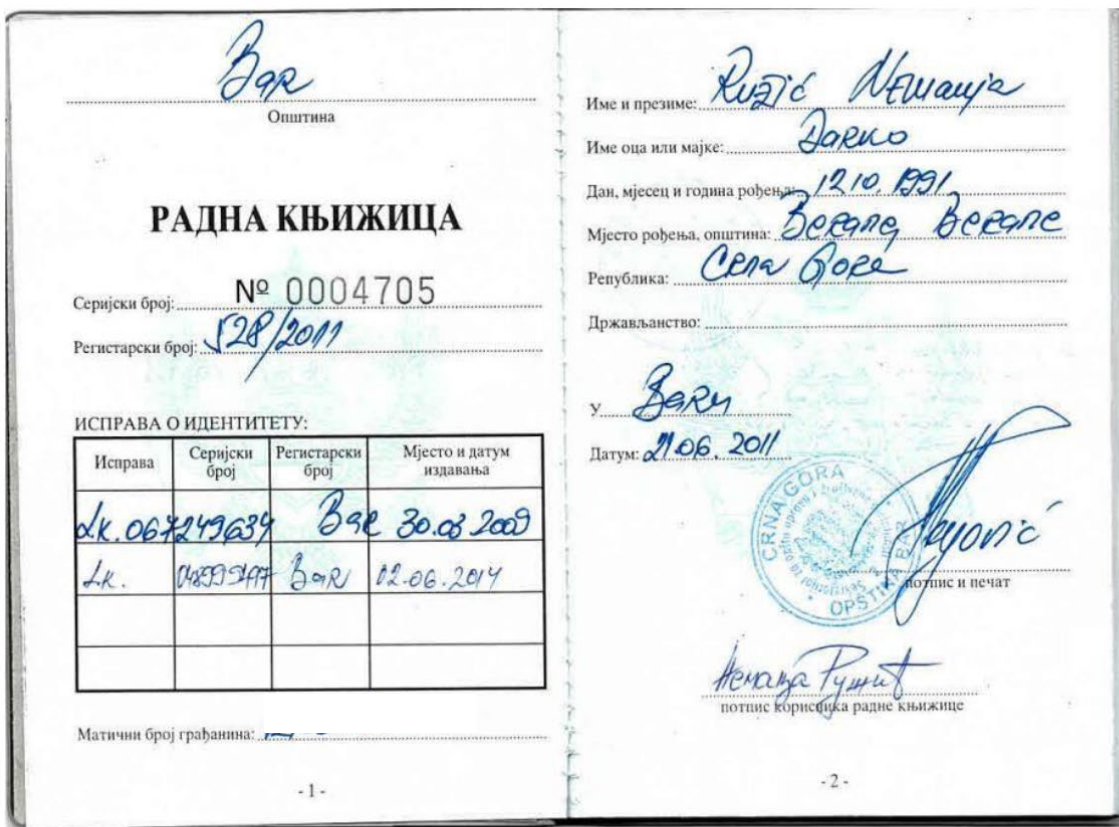 Бар
Општина
РАДНА КЊИЖИЦА
Серијски број: № 0004705
Регистарски број: 528/2011
ИСПРАВА О ИДЕНТИТЕТУ:
Исправа Серијски број Регистарски број Мјесто и датум издавања
Lк. 067249634 Bar 30.03 2009
Lк. Bar 02.06.2014
Матични број грађанина:
-1-
Име и презиме: Ružić Nemanja
Име оца или мајке: Darko
Дан, мјесец и година рођења: 12 10. 1991
Мјесто рођења, општина: Berane, Berane
Република: Crna Gora
Држављанство:
У Baru
Датум: 21.06. 2011
CRNA GORA
OPŠTINA BAR
потпис и печат
Немања Ружић
потпис корисника радне књижице
-2-